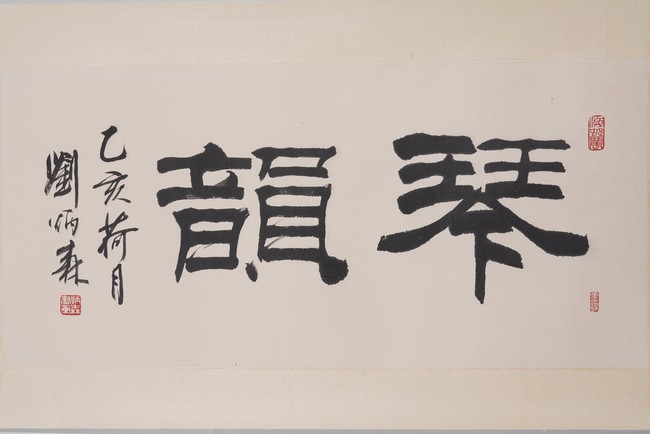 琴韻
乙亥荷月
劉炳森